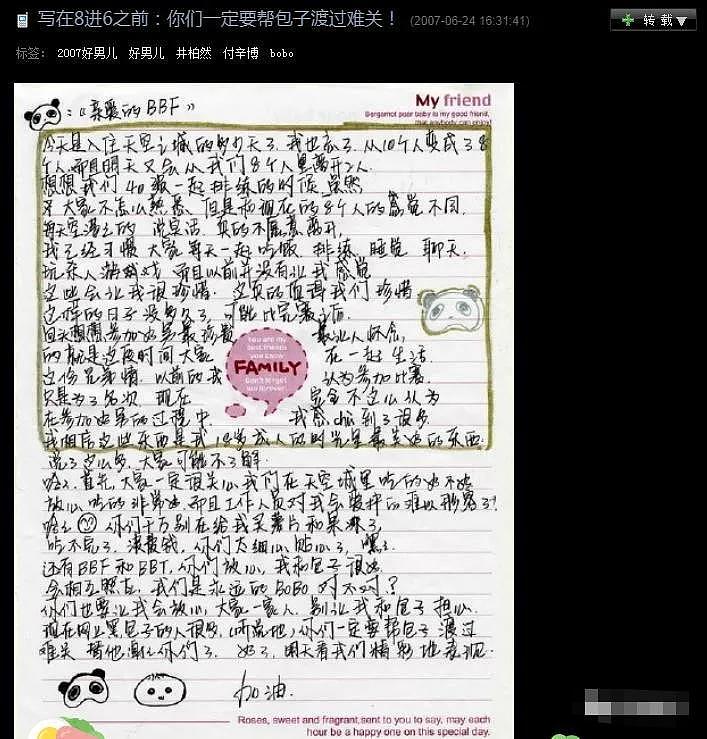 写在8进6之前：你们一定要帮包子渡过难关！ (2007-06-24 16:31:41)
转载▼
标签： 2007好男儿 好男儿 井柏然 付辛博 bobo
My friend
Bergamot poor baby is my good friend,
that anybody can enjoy!
：《亲爱的BBF》
今天是入住天空之城的第九天了.我也哀了.从10个人变成了8
个人.而且明天又会从我们8个人里离开2人.
想想我们40强一起排练的时候 虽然
大家不怎么熟悉.但是和现在的8个人的感觉不同.
每天空荡荡的 说实话.真的不愿意离开,
我已经习惯大家每天一起吃饭 排练.睡觉 聊天.
玩杀人游戏 而且以前并没有让我感觉
这些会让我很珍惜. 这真的值得我们珍惜
这样的日子没多久了,可能比完赛之后
回头想想参加好男儿最珍贵 最让人怀念,
的就是这段时间大家 在一起生活
这份兄弟情.以前的我 认为参加比赛.
只是为了名次 现在 完全不这么认为
在参加好男儿的过程中. 我感chu到了很多.
我相信这些东西是我18岁成人的时光里最美好的东西.
说了这么多.大家可能不了解.
哈哈.首先.大家一定很关心我们在天空城里吃的好不好
放心吃的非常好.而且工作人员对我会装拌的难以形容了!
哈哈 你们千万别在给我买薯片和果冻了,
吃不完了.浪费钱.你们太细心.贴心了,嘿嘿
还有BBF和BBT,你们放心,我和包子很好.
会相互照应.我们是永远的BoBo 对不对?
你们也要让我会放心.大家一家人.别让我和包子担心.
现在网上黑包子的人很多.(听说地)你们一定要帮包子渡过
难关 替他谢谢你们了. 好了,明天看我们精彩地表现.
加油.
You are my
best friends
you know
FAMILY
Don't forget
me forever.
Roses, sweet and fragrant,sent to you to say, may each
hour be a happy one on this special day.